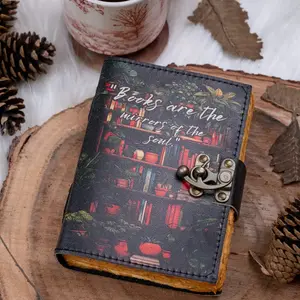 "Books are the
mirrors of the
soul"